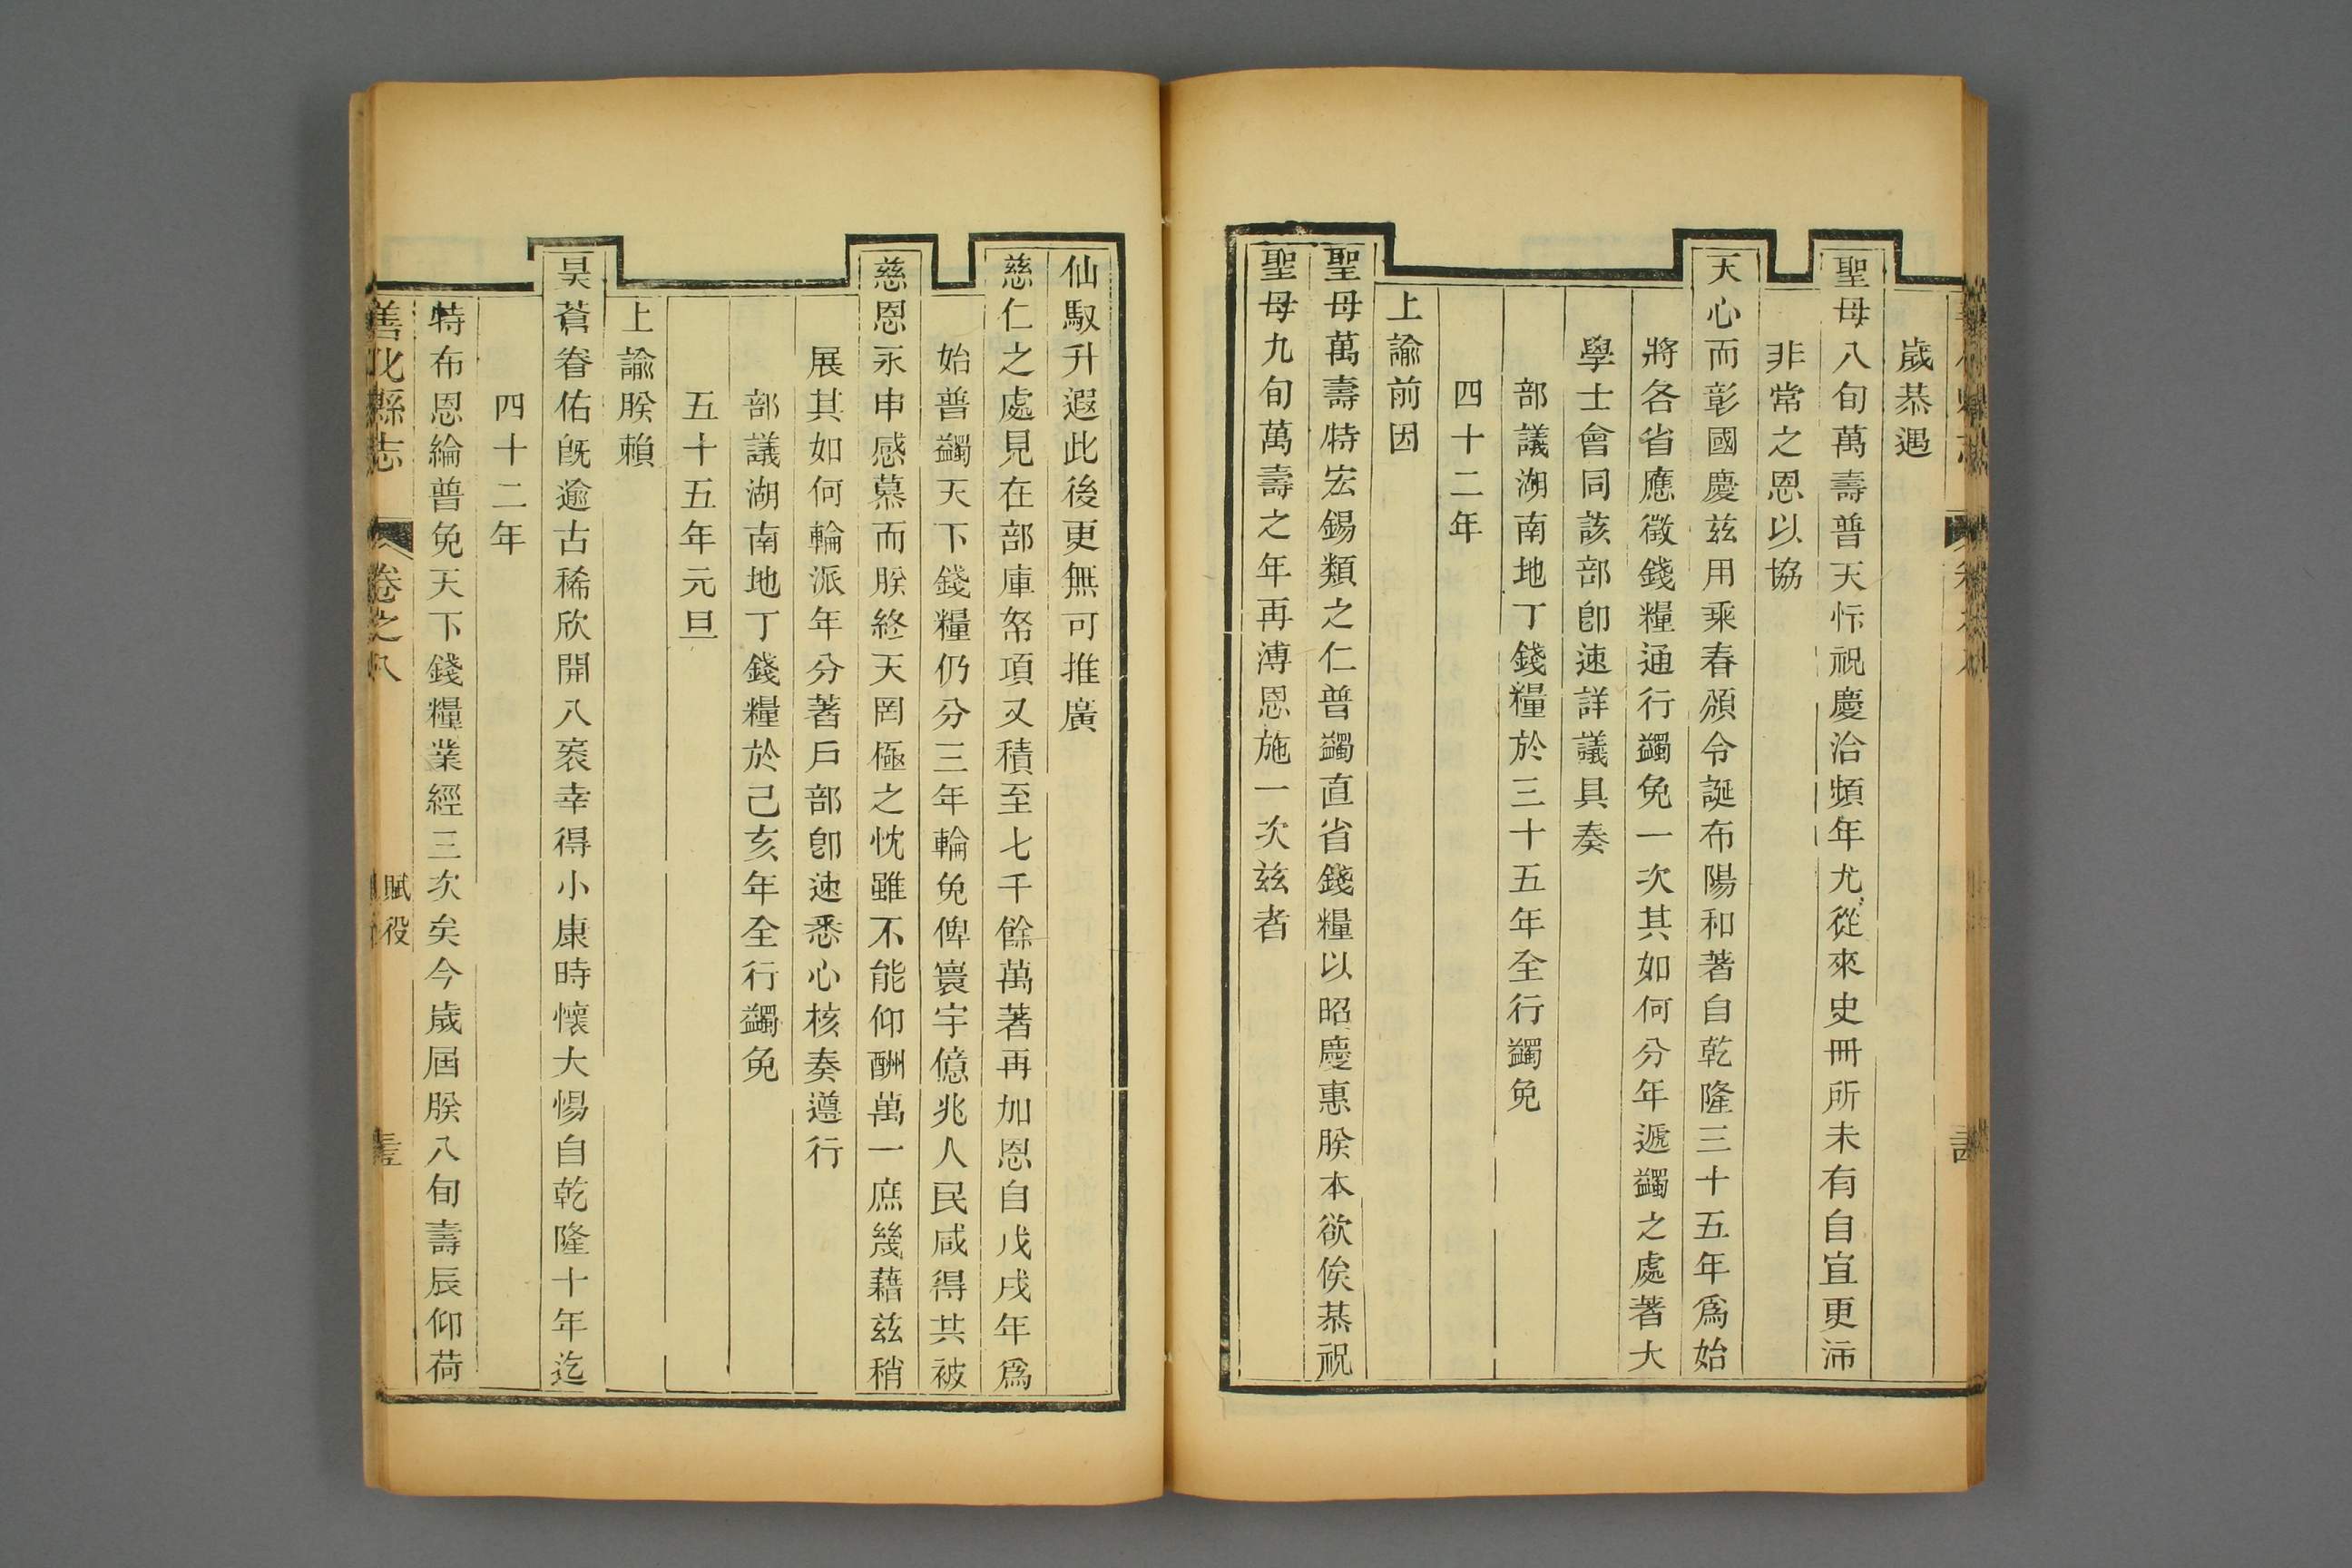 歲恭遇
聖母八旬萬壽普天忭祝慶洽頻年尤從來史冊所未有自宜更沛
非常之恩以協
天心而彰國慶兹用乘春頒令誕布陽和著自乾隆三十五年爲始
將各省應徵錢糧通行蠲免一次其如何分年遞蠲之處著大
學士會同該部卽速詳議具奏
部議湖南地丁錢糧於三十五年全行蠲免
四十二年
上諭前因
聖母萬壽特宏錫類之仁普蠲直省錢糧以昭慶惠朕本欲俟恭祝
聖母九旬萬壽之年再溥恩施一次兹者
仙馭升遐此後更無可推廣
慈仁之處見在部庫帑項又積至七千餘萬著再加恩自戊戌年爲
始普蠲天下錢糧仍分三年輪免俾寰宇億兆人民咸得共被
慈恩永申感慕而朕終天罔極之忱雖不能仰酬萬一庶幾藉兹稍
展其如何輪派年分著戶部卽速悉心核奏遵行
部議湖南地丁錢糧於己亥年全行蠲免
五十五年元旦
上諭朕賴
昊蒼眷佑旣逾古稀欣開八袠幸得小康時懷大惕自乾隆十年迄
四十二年
特布恩綸普免天下錢糧業經三次矣今歲屆朕八旬壽辰仰荷
善化縣志 卷之八 賦役